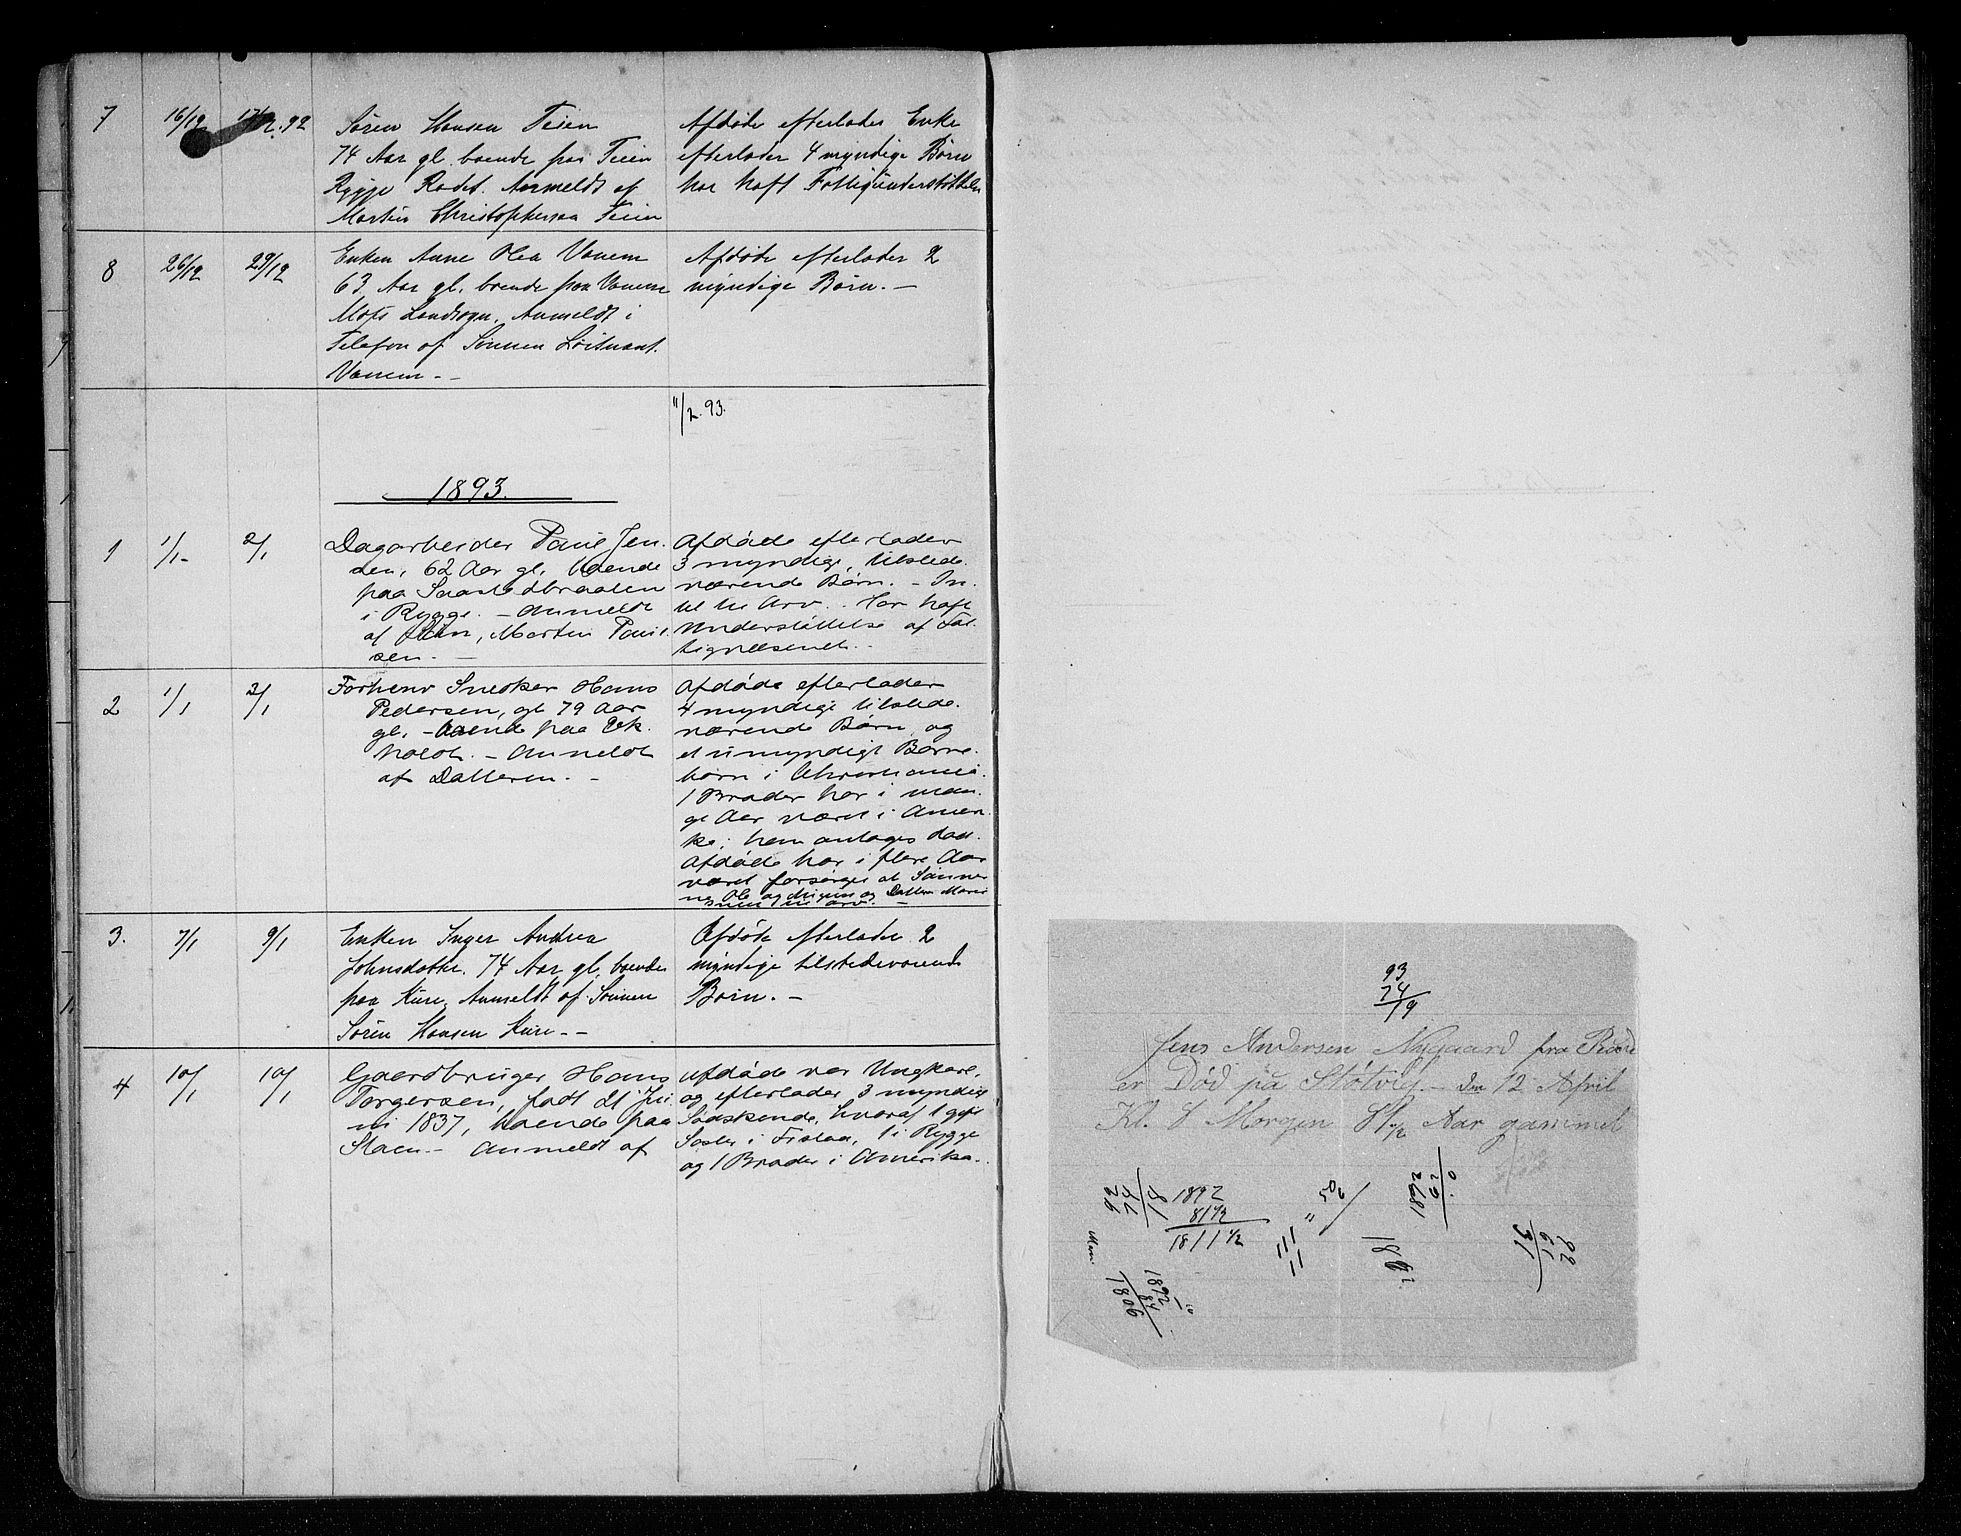 7 16/12 17/12.92
Søren Hansen Teien
74 Aar gl. boende paa Teien
Rygge Anmeldt af
Martin Christophersen Teien
Afdøde efterlader Enke
efterlader 4 myndige Børn
har haft Fattigunderstøttelse
8 26/12 29/12
Enken Anne Olea Vanem
63 Aar gl. boende paa Vanem
Moss Landsogn. Anmeldt i
Telefon af Sønnen Løitnant
Vanem. –
Afdøde efterlader 2
myndige Børn. –
11/2. 93.
1893.
1 1/1 2/1
Dagarbeider Paul Jen-
sen, 62 Aar gl, boende
paa
i Rygge. – Anmeldt
af Søn, Martin Paul-
sen. –
Afdøde efterlader
3 myndige, tilstede-
værende Børn. – In-
tet til Arv. Har haft
Understøttelse af Fat-
tigvæsenet. –
2 1/1 3/1
Forhenv Snedker Hans
Pedersen, gl 79 Aar
gl, – boende paa Ek-
holdt. – Anmeldt
af Datteren. –
Afdøde efterlader
4 myndige tilstede-
værende Børn, og
et umyndigt Barne-
barn i Christiania.
1 Broder har i man-
ge Aar været i Ameri-
ka; han antages død.
Afdøde har i flere Aar
været forsørget af Sønner-
ne Ole og og Datter Marie
intet til Arv. –
3. 7/1 9/1
Enken Inger Andrea
Johnsdatter. 74 Aar gl. boende
paa Kure, Anmeldt af Sønnen
Søren Hansen Kure. –
Afdøde efterlader 2
myndige tilstedeværende
Børn. –
4 10/1 10/1
Gaardbruger Hans
Torgersen, født 21 Ju-
ni 1837, boende paa
Støen. – Anmeldt af
Afdøde var Ungkarl,
og efterlader 3 myndige
Sødskende, hvoraf 1 gift
Søster i 1 i Rygge
og 1 Broder i Amerika.
93
74
19
Jens Andersen Nygaard fra
er Død på Støtvig – den 12 April
Kl. 8 Morgen 81 1/2 Aar gammel
1892
81 1/2
1811 1/2
81
26
1892
1806
92
61
31